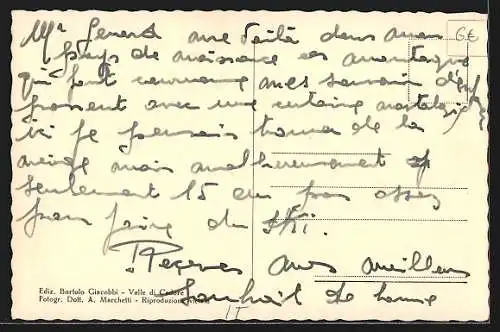 Mr Gerard me voilà dans mon
pays de naissance les montagne
qui font comme mes souvenir dés
passent avec une certaine nostalgie
ici je pensais trouver de la
neige mais malheureusement
seulement 15 cm pas assez
pour faire du ski.
Recevez mes meilleurs
souhait de bonne
6€
Ediz. Bortolo Giacobbi - Valle di Cadore
Fotogr. Dott. A. Marchetti - Riproduzione
IT